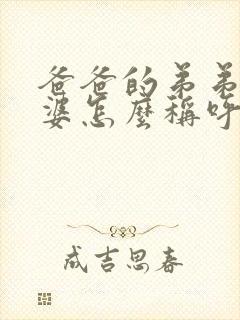 爸爸的弟弟
婆怎麼稱呼
成吉思春